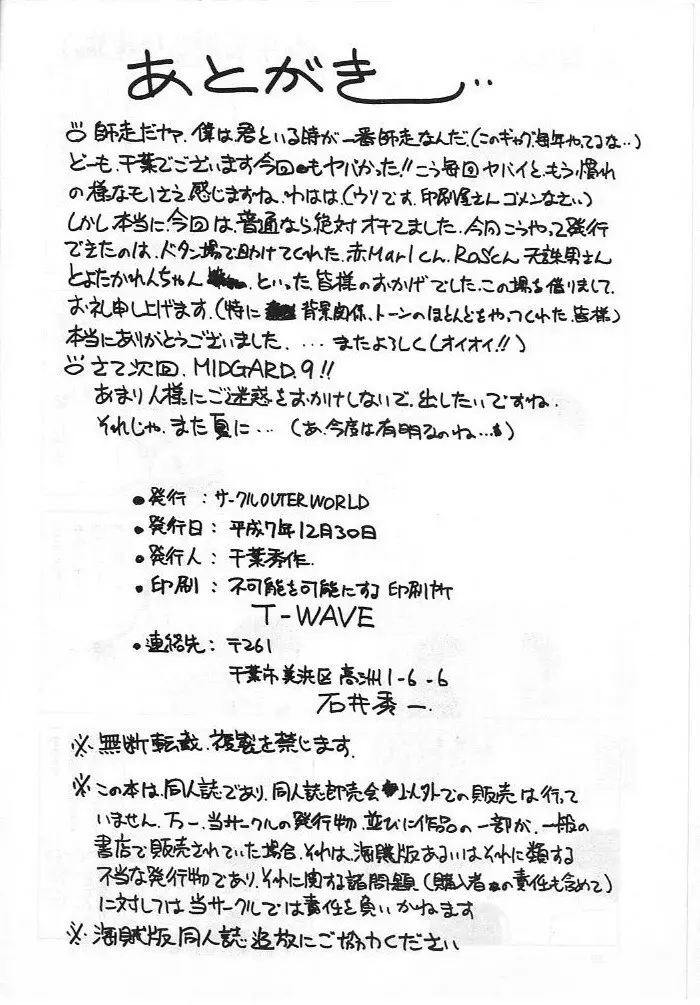 あとがき...
師走だヤァ. 僕は君といる時が一番師走なんだ.(このギャグ毎年やってるな..)
どーも.千葉でございます今回もヤバかった!!こう毎回ヤバイと.もう慣れ
の様なモノさえ感じますね.わはは.(ウソです.印刷屋さんゴメンなさい)
しかし本当に今回は.普通なら絶対オチてました.今回こうやって発行
できたのは.ドタン場で助けてくれた.赤Marlくん.RaSくん天誅男さん
とよたかれんちゃん.といった皆様のおかげでした.この場を借りまして.
お礼申し上げます.(特に背景関係、トーンのほとんどをやってくれた.皆様)
本当にありがとうございました. ...またよろしく(オイオイ!!)
さて次回. MIDGARD.9!!
あまり人様にご迷惑をおかけしないで.出したいですね.
それじゃ.また夏に... (あ.今度は有明なのね...)
●発行 : サークルOUTER WORLD
●発行日: 平成7年12月30日
●発行人: 千葉秀作.
●印刷 : 不可能を可能にする印刷所
T-WAVE
●連絡先: 〒261
千葉市美浜区高洲1-6-6
石井秀一.
※無断転載.複製を禁じます.
※この本は.同人誌であり.同人誌即売会以外での販売は行って
いません.万一.当サークルの発行物.並びに作品の一部が.一般の
書店で販売されていた場合.それは.海賊版あるいはそれに類する
不当な発行物であり.それに関する諸問題(購入者の責任も含めて)
に対しては当サークルでは責任を負いかねます
※海賊版同人誌追放にご協力ください